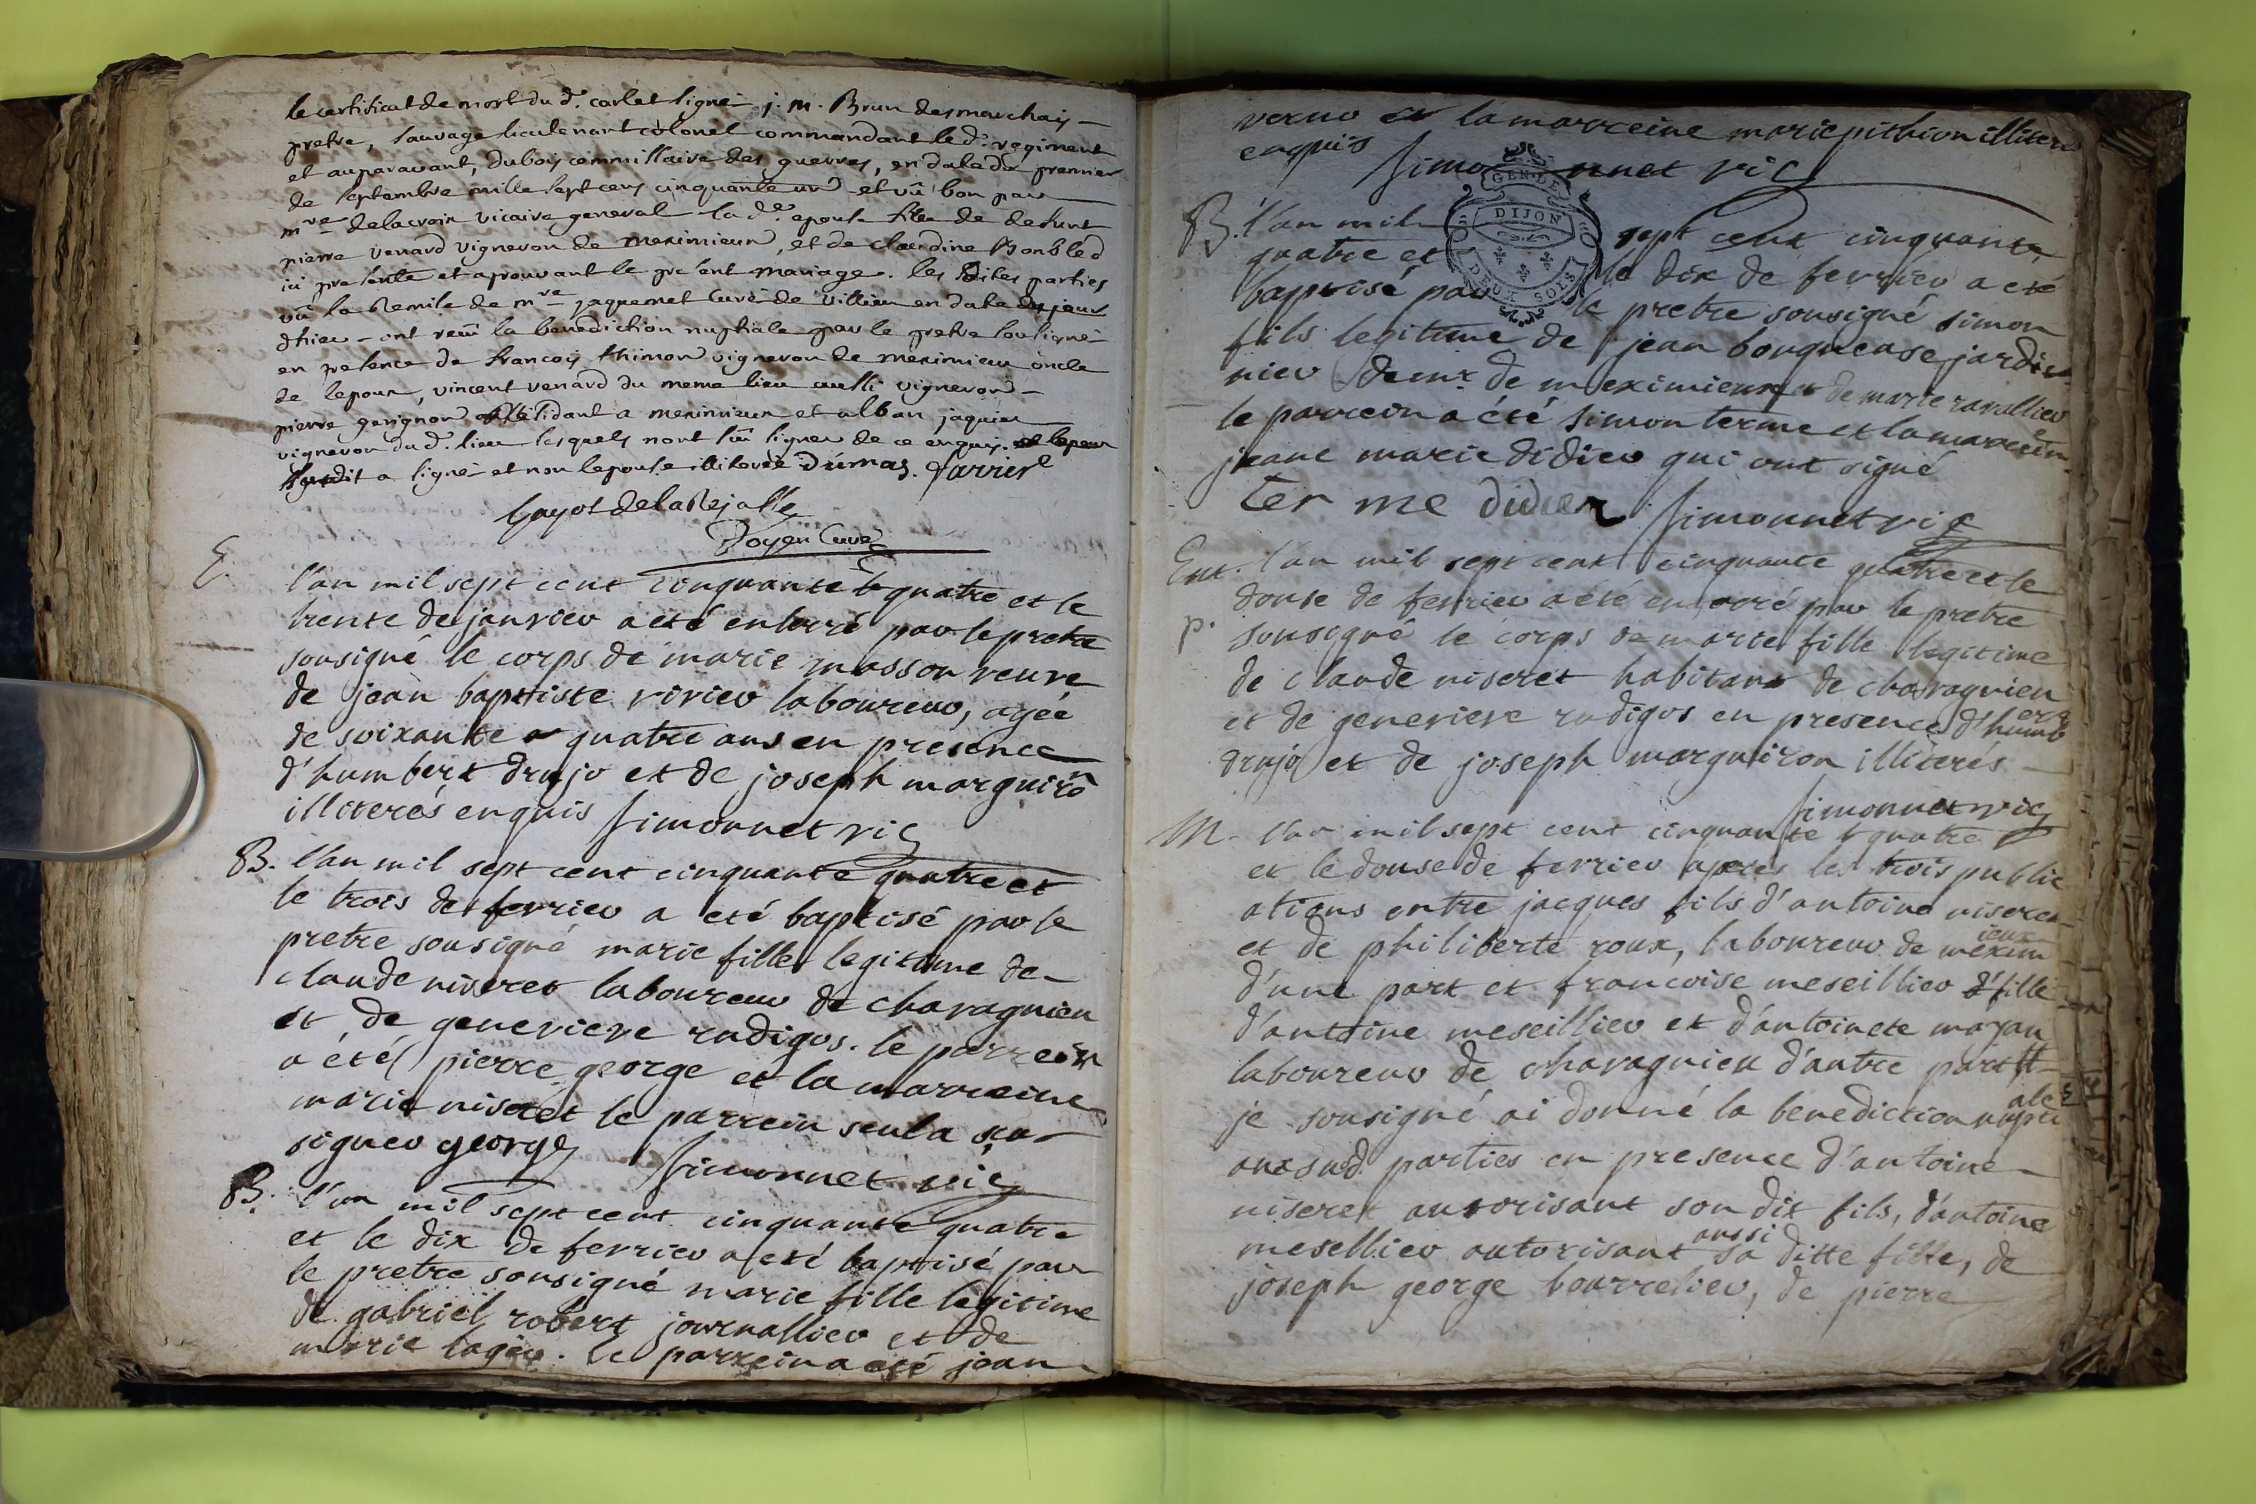 le certificat de mort du d. carlet signé j. m. Brun desmarchais
pretre, sauvage lieutenant colonel commandant led. regiment
et auparavant, dubois commissaire des guerres, en date du premier
de septembre mille sept cens cinquante un et vû bon par
mre delacroix vicaire general lad.e epouse fille de defunt
pierre venard vigneron de meximieux, et de claudine Bonbled
ici presente et aprouvant le present mariage. les dites parties
vû la Remise de mre jaquemet curé de villieu en date du jour
dhier ont recû la benediction nuptiale par le pretre soussigné
en presence de francois thimon vigneron de meximieux oncle
de lepoux, vincent venard du meme lieu aussi vigneron
pierre gerignon residant a meximieux et alban jaquier
vigneron dud. lieu lesquels nont sû signer de ce enquis. lepoux
a signé et non lepouse illiterée Dumas. Sarrier
Gayot delaRejasse
Doyen Curé
E. l'an mil sept cent cinquante quatre et le
trente de janvier a eté enterré par le pretre
sousigné le corps de marie masson veuve
de jean baptiste virieu laboureur, agée
de soixante quatre ans en presence
d'humbert drujo et de joseph marguiron
illiterés enquis simonnet vic
B. l'an mil sept cent cinquante quatre et
le trois de fevrier a eté baptisé par le
pretre sousigné marie fille legitime de
claude niseret laboureur de chavagnieu
et de genevieve radigos. le parrein
a été pierre george et la marreine
marie niseret le parrein seul a scu
signer george simonnet vic
B. l'an mil sept cent cinquante quatre
et le dix de fevrier a eté baptisé par
le pretre sousigné marie fille legitime
de gabriel robert journallier et de
marie lagier. le parrein a eté jean
et la marreine marie pithion illiteres
enquis simonnet vic
GEN. DE
DIJON
DEUX SOLS
B. l'an mil sept cent cinquante
quatre et le dix de fevrier a eté
baptisé par le pretre sousigné simon
fils legitime de jean bouqueuse jardi
nier demt. de meximieux et de marie ravallier
le parrein a été simon terme et la marreine
jeane marie didier qui ont signé
ter me didier simonnet vic
Ent. l'an mil sept cent cinquante quatre et le
douse de fevrier a été enterré par le pretre
p. sousigné le corps de marie fille legitime
de claude niseret habitant de chavagnieu
et de genevieve radigos en presence d'humbert
drujo et de joseph marguiron illiterés
simonnet vic
M. l'an mil sept cent cinquante quatre
et le douse de fevrier apres les trois public
ations entre jacques fils d'antoine niseret
et de philiberte roux, laboureur de meximieux
d'une part et francoise meseillier fille
d'antoine meseillier et d'antoinete moyan
laboureur de chavagnieu d'autre part
je sousigné ai donné la benediction nuptiale
aux sud. parties en presence d'antoine
niseret autorisant son dit fils, d'antoine
mesellier autorisant aussi sa ditte fille, de
joseph george bourrelier, de pierre